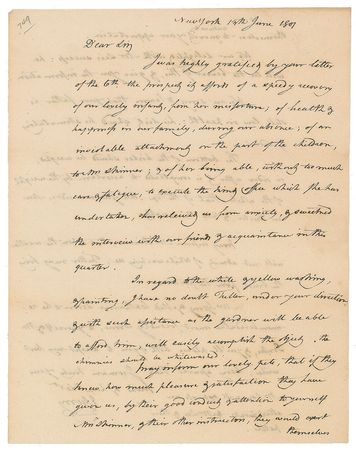 New York 14th June 1807
Dear Sir,
I was highly gratified by your letter
of the 6th the prospect it affords of a speedy recovery
of our lovely infant, from her misfortune; of health &
happiness in our family, during our absence; of an
inviolable attachment on the part of the children,
to Mrs Skinner; & of her being able, without too much
care & fatigue, to execute the kind office which she has
undertaken, has relieved us from anxiety, & sweetened
the interviews with our friends & acquaintance in this
quarter.
In regard to the white & yellow washing,
& painting, I have no doubt Fuller, under your direction
& with such assistance as the gardner will be able
to afford him, will easily accomplish the object. the
chimnies should be whitewashed
May inform our lovely pets, that if they
knew, how much pleasure & satisfaction they have
given us, by their good conduct & attention to yourself
Mrs Skinner, & their other instructors, they would exert
themselves